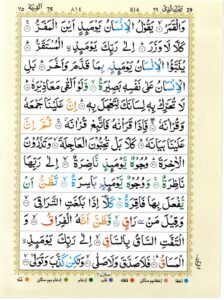 29 ٢٩ 814 ٨١٤ 75 القيمة ٧٥
وَالْقَمَرُ ۙ يَقُوْلُ الْاِنْسَانُ يَوْمَئِذٍ اَيْنَ الْمَفَرُّ
كَلَّا لَا وَزَرَ اِلٰى رَبِّكَ يَوْمَئِذِ الْمُسْتَقَرُّ
يُنَبَّؤُا الْاِنْسَانُ يَوْمَئِذٍ بِمَا قَدَّمَ وَاَخَّرَ بَلِ
الْاِنْسَانُ عَلٰى نَفْسِهٖ بَصِيْرَةٌ وَّلَوْ اَلْقٰى مَعَاذِيْرَهٗ
لَا تُحَرِّكْ بِهٖ لِسَانَكَ لِتَعْجَلَ بِهٖ اِنَّ عَلَيْنَا جَمْعَهٗ
وَقُرْاٰنَهٗ فَاِذَا قَرَاْنٰهُ فَاتَّبِعْ قُرْاٰنَهٗ ثُمَّ اِنَّ
عَلَيْنَا بَيَانَهٗ كَلَّا بَلْ تُحِبُّوْنَ الْعَاجِلَةَ وَتَذَرُوْنَ
الْاٰخِرَةَ وُجُوْهٌ يَّوْمَئِذٍ نَّاضِرَةٌ اِلٰى رَبِّهَا
نَاظِرَةٌ وَوُجُوْهٌ يَّوْمَئِذٍ بَاسِرَةٌ تَظُنُّ اَنْ
يُّفْعَلَ بِهَا فَاقِرَةٌ كَلَّا اِذَا بَلَغَتِ التَّرَاقِيَ
وَقِيْلَ مَنْ رَاقٍ وَّظَنَّ اَنَّهُ الْفِرَاقُ وَ
الْتَفَّتِ السَّاقُ بِالسَّاقِ اِلٰى رَبِّكَ يَوْمَئِذِ
الْمَسَاقُ فَلَا صَدَّقَ وَلَا صَلّٰى وَلٰكِنْ كَذَّبَ وَتَوَلّٰى